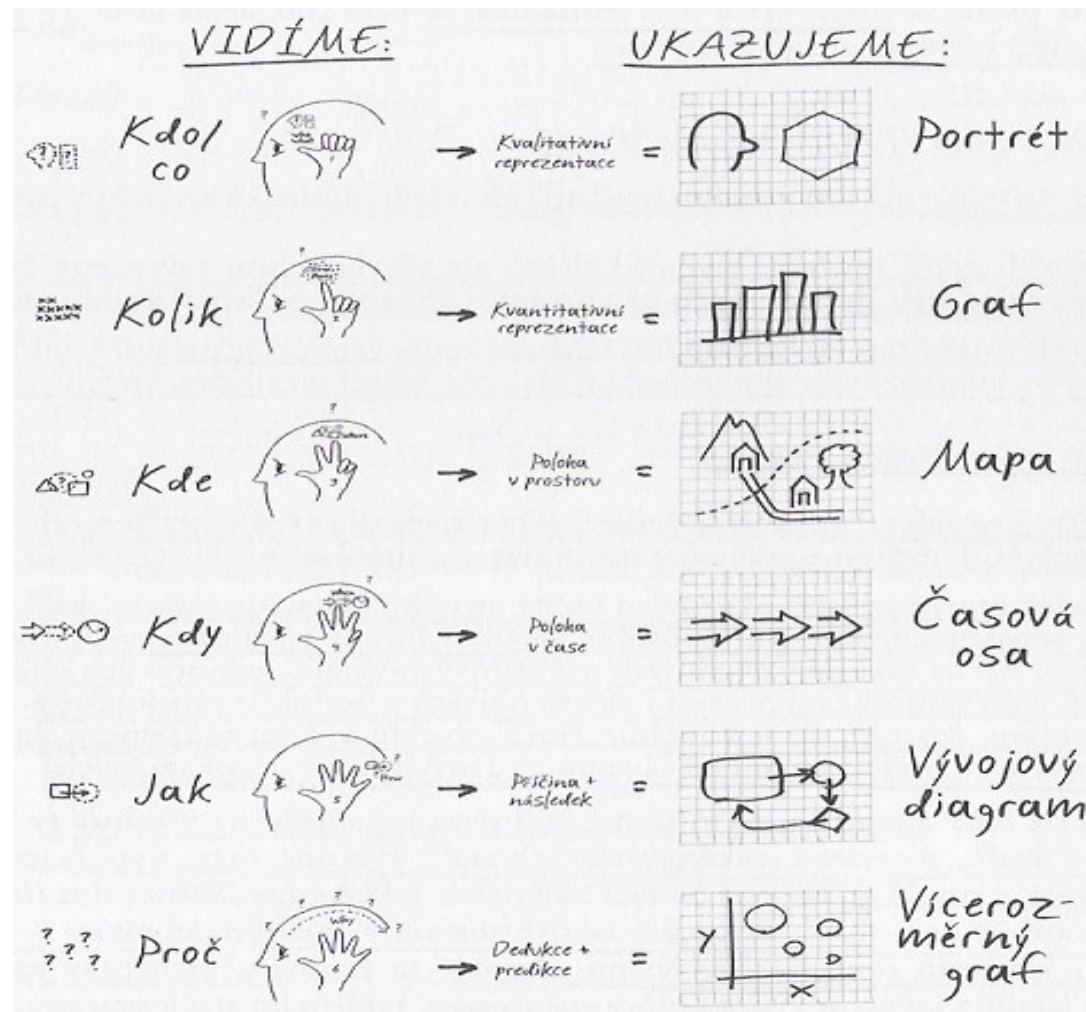 VIDÍME: UKAZUJEME:
Kdo/
co
Kvalitativní
reprezentace
=
Portrét
Kolik
Kvantitativní
reprezentace
=
Graf
Kde
Poloha
v prostoru
=
Mapa
Kdy
Poloha
v čase
=
Časová
osa
Jak
Příčina +
následek
=
Vývojový
diagram
Proč
Dedukce +
predikce
=
Y
X
Víceroz-
měrný
graf